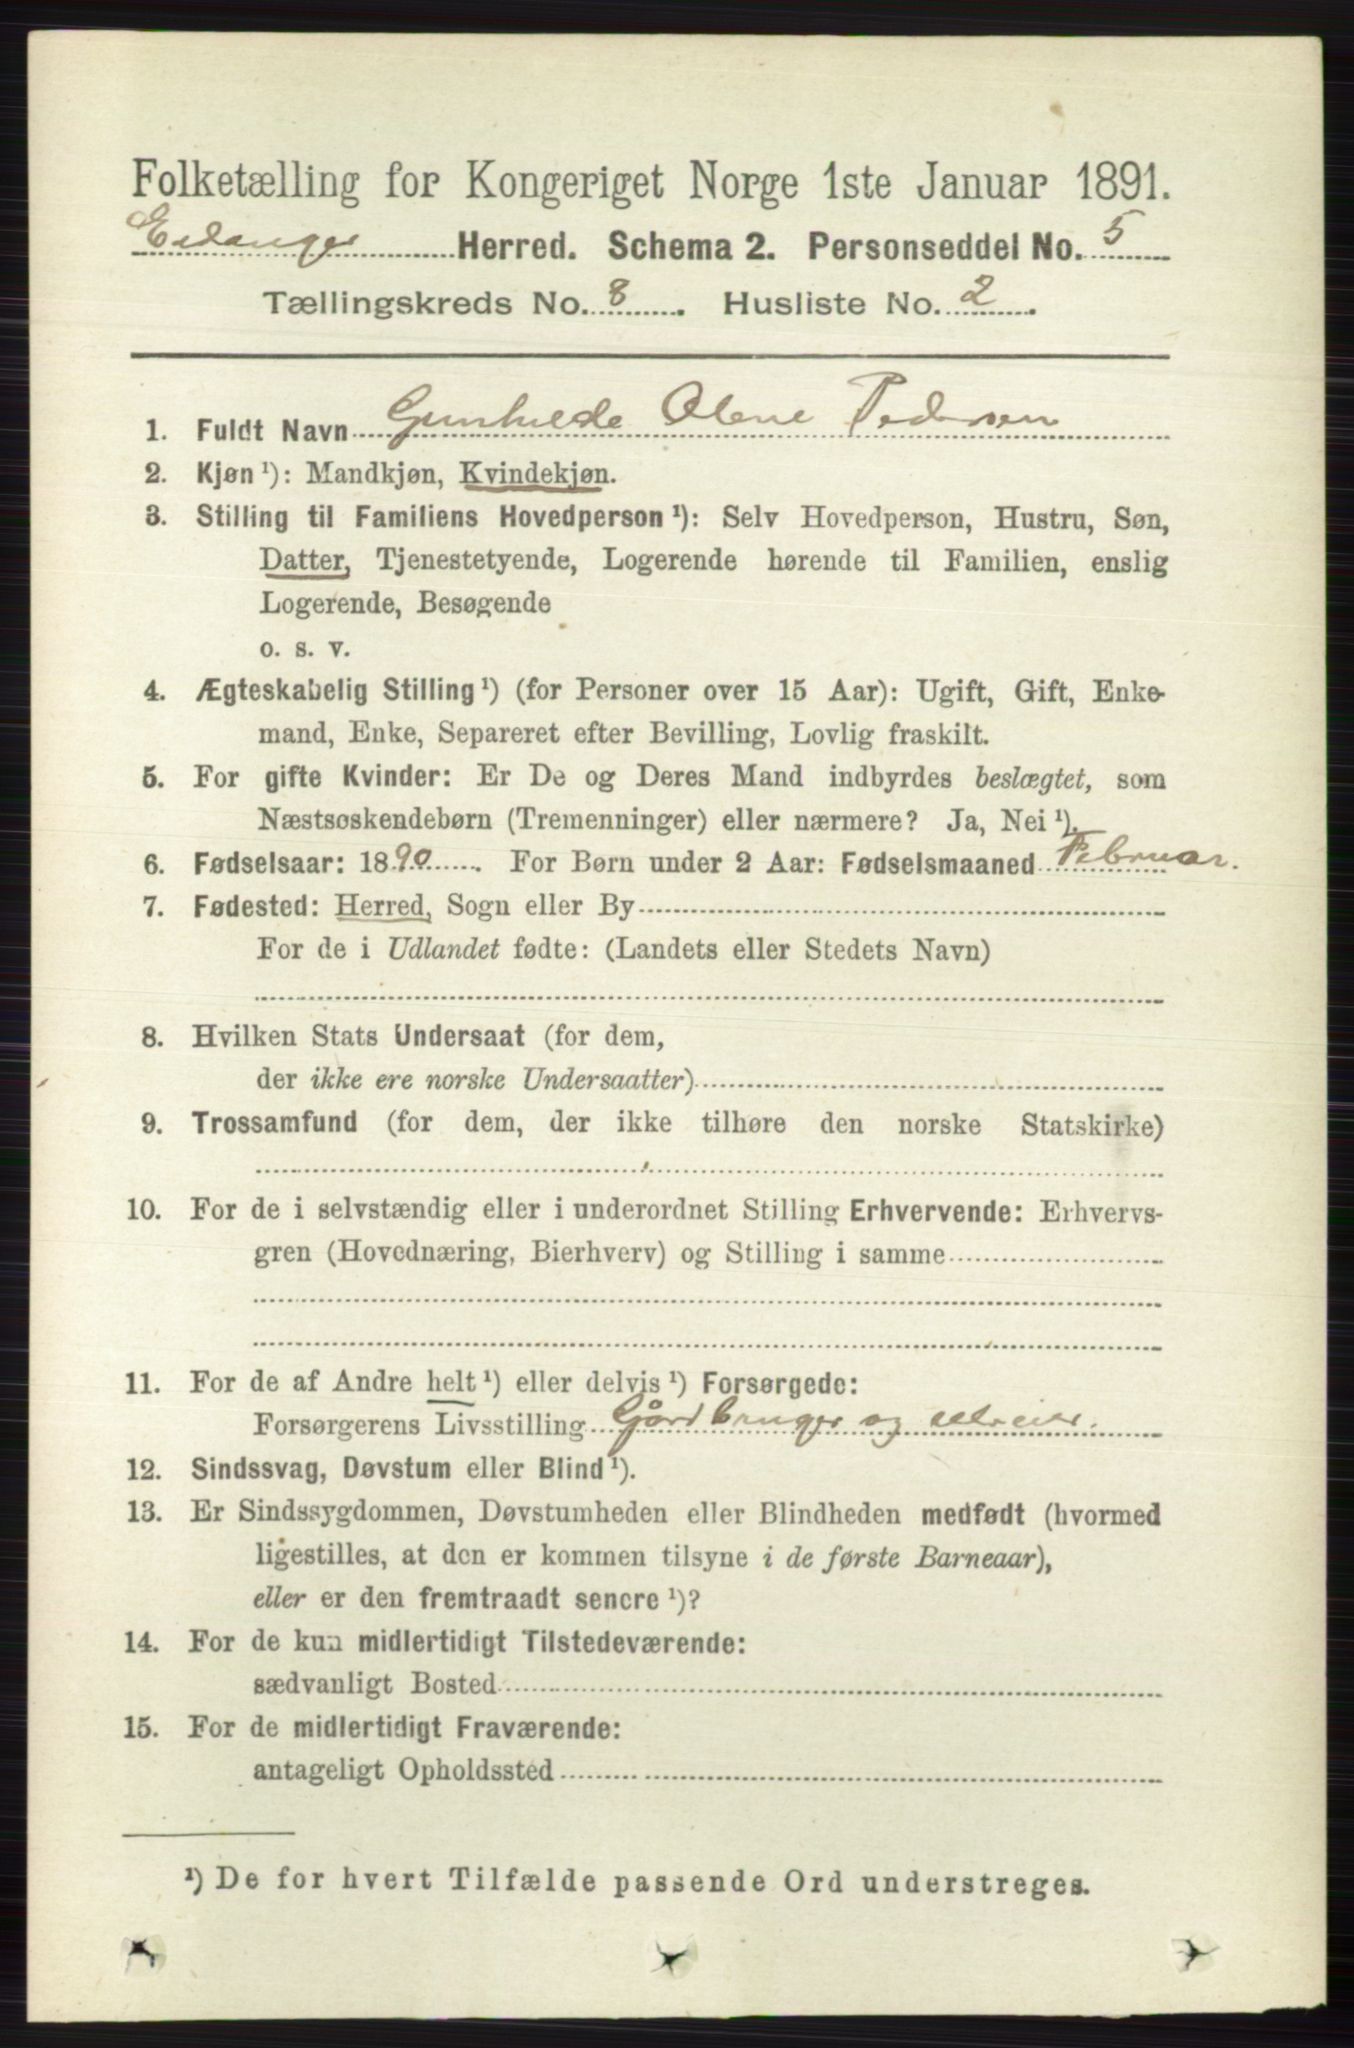 Folketælling for Kongeriget Norge 1ste Januar 1891.
Eidanger Herred. Schema 2. Personseddel No. 5
Tællingskreds No. 8. Husliste No. 2.
1. Fuldt Navn Gunhilde Olene Pedersen
2. Kjøn¹): Mandkjøn, Kvindekjøn.
3. Stilling til Familiens Hovedperson¹): Selv Hovedperson, Hustru, Søn,
Datter, Tjenestetyende, Logerende hørende til Familien, enslig
Logerende, Besøgende
o. s. v.
4. Ægteskabelig Stilling¹) (for Personer over 15 Aar): Ugift, Gift, Enke-
mand, Enke, Separeret efter Bevilling, Lovlig fraskilt.
5. For gifte Kvinder: Er De og Deres Mand indbyrdes beslægtet, som
Næstsøskendebørn (Tremenninger) eller nærmere? Ja, Nei¹).
6. Fødselsaar: 1890. For Børn under 2 Aar: Fødselsmaaned Februar.
7. Fødested: Herred, Sogn eller By
For de i Udlandet fødte: (Landets eller Stedets Navn)
8. Hvilken Stats Undersaat (for dem,
der ikke ere norske Undersaatter)
9. Trossamfund (for dem, der ikke tilhøre den norske Statskirke)
10. For de i selvstændig eller i underordnet Stilling Erhvervende: Erhvervs-
gren (Hovednæring, Bierhverv) og Stilling i samme
11. For de af Andre helt¹) eller delvis¹) Forsørgede:
Forsørgerens Livsstilling Gårdbruger og selveier.
12. Sindssvag, Døvstum eller Blind¹).
13. Er Sindssygdommen, Døvstumheden eller Blindheden medfødt (hvormed
ligestilles, at den er kommen tilsyne i de første Barneaar),
eller er den fremtraadt senere¹)?
14. For de kun midlertidigt Tilstedeværende:
sædvanligt Bosted
15. For de midlertidigt Fraværende:
antageligt Opholdssted
¹) De for hvert Tilfælde passende Ord understreges.